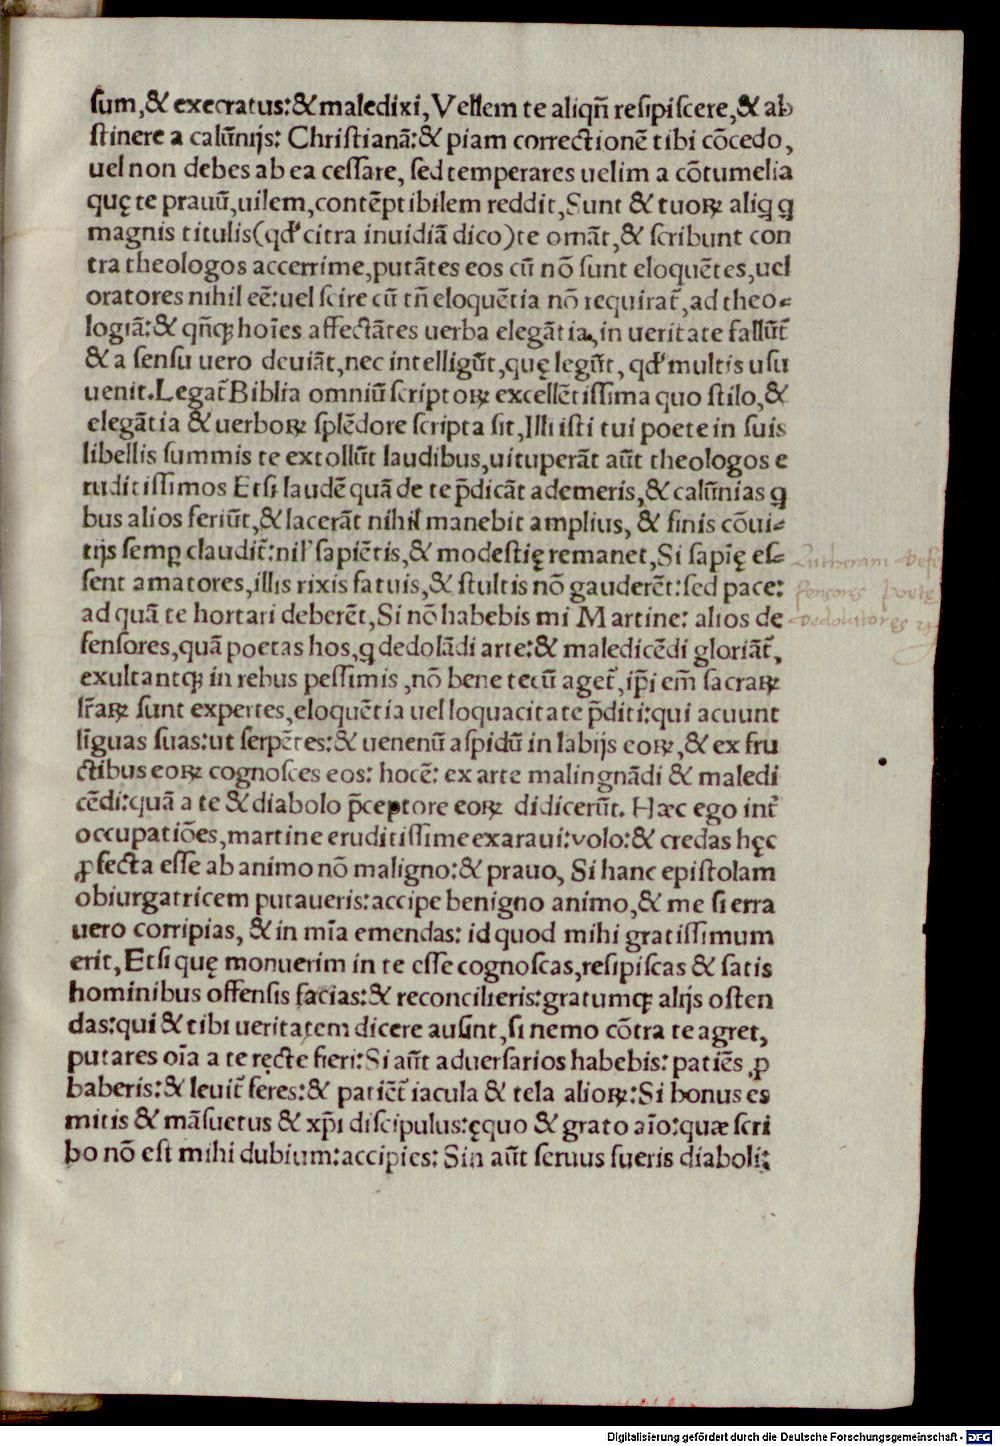 ſum,& execratus:& maledixi,Vellem te aliqñ reſipiſcere,& ab
ſtinere a calũnijs: Chriſtianã:& piam correctionẽ tibi cõcedo,
uel non debes ab ea ceſſare, ſed temperares uelim a cõtumelia
quę te prauũ,uilem,contẽptibilem reddit,Sunt & tuoꝝ aliꝗ ꝗ
magnis titulis(qđ citra inuidiã dico)te ornãt,& ſcribunt con
tra theologos accerrime,putãtes eos cũ nõ ſunt eloquẽtes,uel
oratores nihil eẽ:uel ſcire cũ tñ eloquẽtia nõ requirat᷑,ad theo⸗
logiã:& qñꝗꝫ hoĩes affectãtes uerba elegãtia,in ueritate fallũt᷑
& a ſenſu uero deuiãt,nec intelligũt,quę legũt, qđ multis uſu
uenit.Legat᷑ Biblia omniũ ſcriptoꝝ excellẽtiſſima quo ſtilo,&
elegãtia & uerboꝝ ſplẽdore ſcripta ſit,Illi iſti tui poete in ſuis
libellis ſummis te extollũt laudibus,uituperãt aũt theologos e
ruditiſſimos Etſi laudẽ quã de te p̃dicãt ademeris,& calũnias ꝗ
bus alios feriũt,& lacerãt nihil manebit amplius, & finis cõui⸗
tijs ſemꝑ claudit᷑:nil' ſapiẽtis,& modeſtię remanet,Si ſapię eſ⸗
ſent amatores,illis rixis fatuis,& ſtultis nõ gauderẽt:ſed pace:
ad quã te hortari deberẽt,Si nõ habebis mi Martine: alios de
fenſores,quã poetas hos,ꝗ dedolãdi arte:& maledicẽdi gloriãt᷑,
exultantꝗꝫ in rebus peſſimis ,nõ bene tecũ aget᷑,ip̃i em̃ ſacraꝝ
lr̃aꝝ ſunt expertes,eloquẽtia uel loquacitate p̃diti:qui acuunt
lĩguas ſuas:ut ſerpẽtes:& uenenũ aſpidũ in labijs eoꝝ,& ex fru
ctibus eoꝝ cognoſces eos: hoc ẽ: ex arte malingnãdi & maledi
cẽdi:quã a te & diabolo p̃ceptore eoꝝ didicerũt. Hæc ego int᷑
occupatiões,martine eruditiſſime exaraui:volo:& credas hęc
ꝓfecta eſſe ab animo nõ maligno:& prauo, Si hanc epiſtolam
obiurgatricem putaueris:accipe benigno animo,& me ſi erra
uero corripias, & in mĩa emendas: id quod mihi gratiſſimum
erit,Etſi quę monuerim in te eſſe cognoſcas,reſipiſcas & ſatis
hominibus offenſis facias:& reconcilieris:gratumꝗꝫ alijs oſten
das:qui & tibi ueritatem dicere auſint,ſi nemo cõtra te agret,
putares oĩa a te ręcte fieri:Si aũt aduerſarios habebis: patiẽs ꝓ
baberis:& leuit᷑ feres:& patiẽt᷑ iacula & tela alioꝝ:Si bonus es
mitis & mãſuetus & xp̃i diſcipulus:ęquo & grato aĩo:quæ ſcri
bo nõ eſt mihi dubium:accipies: Sin aũt ſeruus fueris diaboli:
Lutherani Defe
ſenſores poete
dedolatores
Digitalisierung gefördert durch die Deutsche Forschungsgemeinschaft - DFG